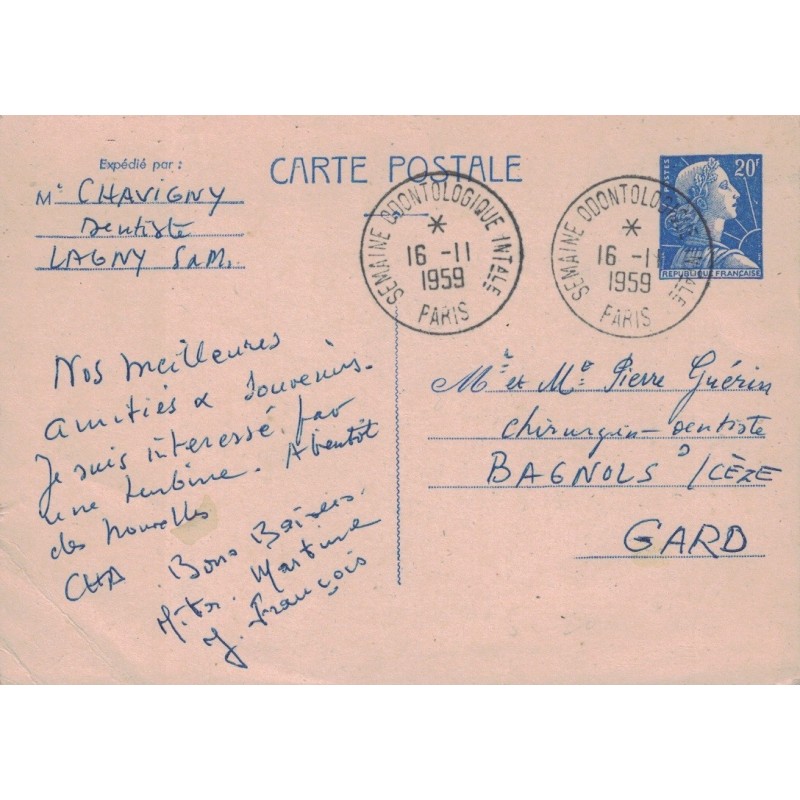 Expédié par :
Mr CHAVIGNY
Dentiste
LAGNY S&M.
CARTE POSTALE
SEMAINE ODONTOLOGIQUE INTALE
*
16 -11
1959
PARIS
SEMAINE ODONTOLOGIQUE INTALE
*
16 -11
1959
PARIS
POSTES
20F
REPUBLIQUE FRANÇAISE
Nos meilleures
amitiés & Souvenirs.
Je suis interessé par
une turbine. A bientôt
des nouvelles
CHA Bons Baisers.
Martine
François
Mr et Me Pierre Guérin
Chirurgien-Dentiste
BAGNOLS S/CÈZE
GARD